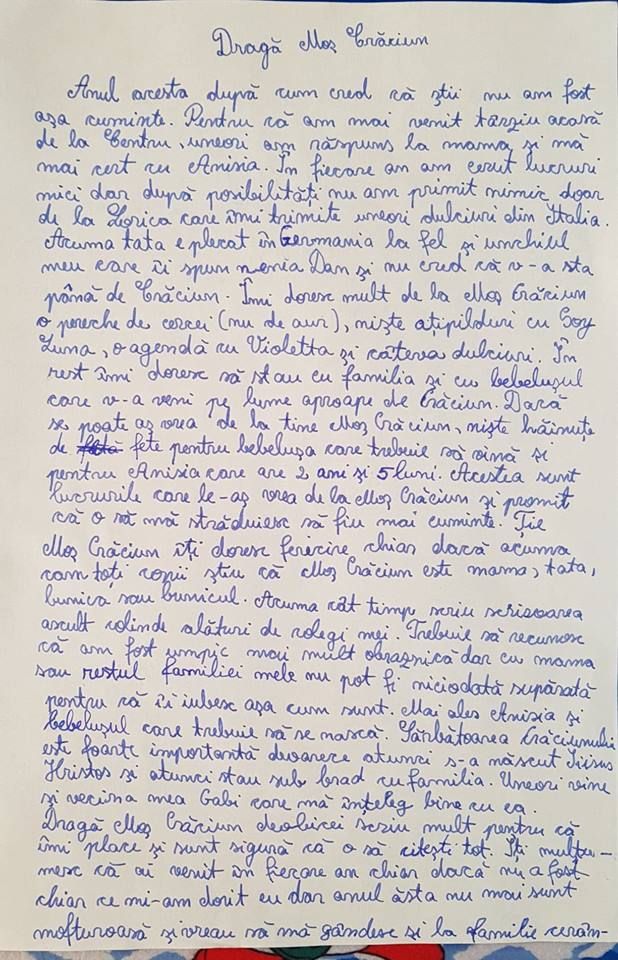 Dragă Moș Crăciun
Anul acesta după cum cred că știi nu am fost
așa cuminte. Pentru că am mai venit târziu acasă
de la Centru, uneori am răspuns la mama și mă
mai cert cu Anisia. În fiecare an am cerut lucruri
mici dar după posibilități nu am primit nimic doar
de la Lorica care îmi trimite uneori dulciuri din Italia.
Acuma tata e plecat în Germania la fel și unchiul
meu care îi spun nenia Dan și nu cred că v-a sta
până de Crăciun. Îmi doresc mult de la Moș Crăciun
o pereche de cercei (nu de aur), niște ațipilduri cu Soy
Luna, o agendă cu Violetta și câteva dulciuri. În
rest îmi doresc să stau cu familia și cu bebelușul
care v-a veni pe lume aproape de Crăciun. Dacă
se poate aș vrea de la tine Moș Crăciun, niște hăinuțe
de fete pentru bebelușa care trebuie să vină și
pentru Anisia care are 2 ani și 5 luni. Acestea sunt
lucrurile care le-aș vrea de la Moș Crăciun și promit
că o să mă străduiesc să fiu mai cuminte. Ție
Moș Crăciun îți doresc fericire chiar dacă acuma
cam toți copii știu că Moș Crăciun este mama, tata,
bunica sau bunicul. Acuma cât timp scriu scrisoarea
ascult colinde alături de colegi mei. Trebuie să recunosc
că am fost umpic mai mult obraznică dar cu mama
sau restul familiei mele nu pot fi niciodată supărată
pentru că îi iubesc așa cum sunt. Mai ales Anisia și
bebelușul care trebuie să se nască. Sărbătoarea Crăciunului
este foarte importantă deoarece atunci s-a născut Iisus
Hristos și atunci stau sub brad cu familia. Uneori vine
și vecina mea Gabi care mă înțeleg bine cu ea.
Dragă Moș Crăciun deobicei scriu mult pentru că
îmi place și sunt sigură că o să citești tot. Îți mulțu-
mesc că ai venit în fiecare an chiar dacă nu a fost
chiar ce mi-am dorit eu dar anul ăsta nu mai sunt
mofturoasă și vreau să mă gândesc și la familie cerâm-